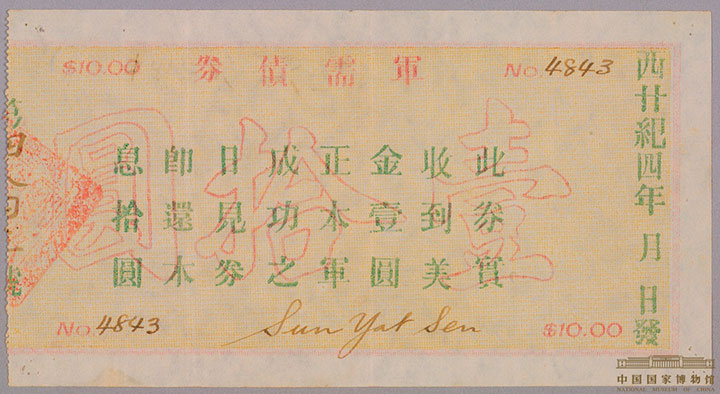 西廿紀四年 月 日發
No. 4843
軍需債券
$10.00
壹拾圓
此券實
收到美
金壹圓
正本軍
成功之
日見券
卽還本
息拾圓
No. 4843
Sun Yat Sen
$10.00
中国国家博物馆
NATIONAL MUSEUM OF CHINA